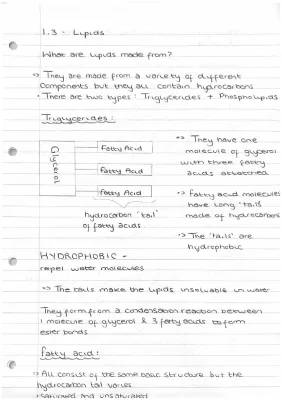 1.3 - Lipids
What are lipids made from?
⇒ They are made from a variety of different
components but they all contain hydrocarbons
• There are two types: Triglycerides + Phospholipids
Triglycerides:
Glycerol
Fatty Acid
Fatty Acid
Fatty Acid
hydrocarbon 'tail'
of fatty acids
⇒ They have one
molecule of glycerol
with three fatty
acids attatched
⇒ fatty acid molecules
have long 'tails'
made of hydrocarbons
⇒ The 'tails' are
hydrophobic
HYDROPHOBIC -
repel water molecules
⇒ The tails make the lipids insoluable in water
They form from a condensation reaction between
1 molecule of glycerol & 3 fatty acids to form
ester bonds
fatty acid:
⇒ All consist of the same basic structure but the
hydrocarbon tail varies
• saturated and unsaturated